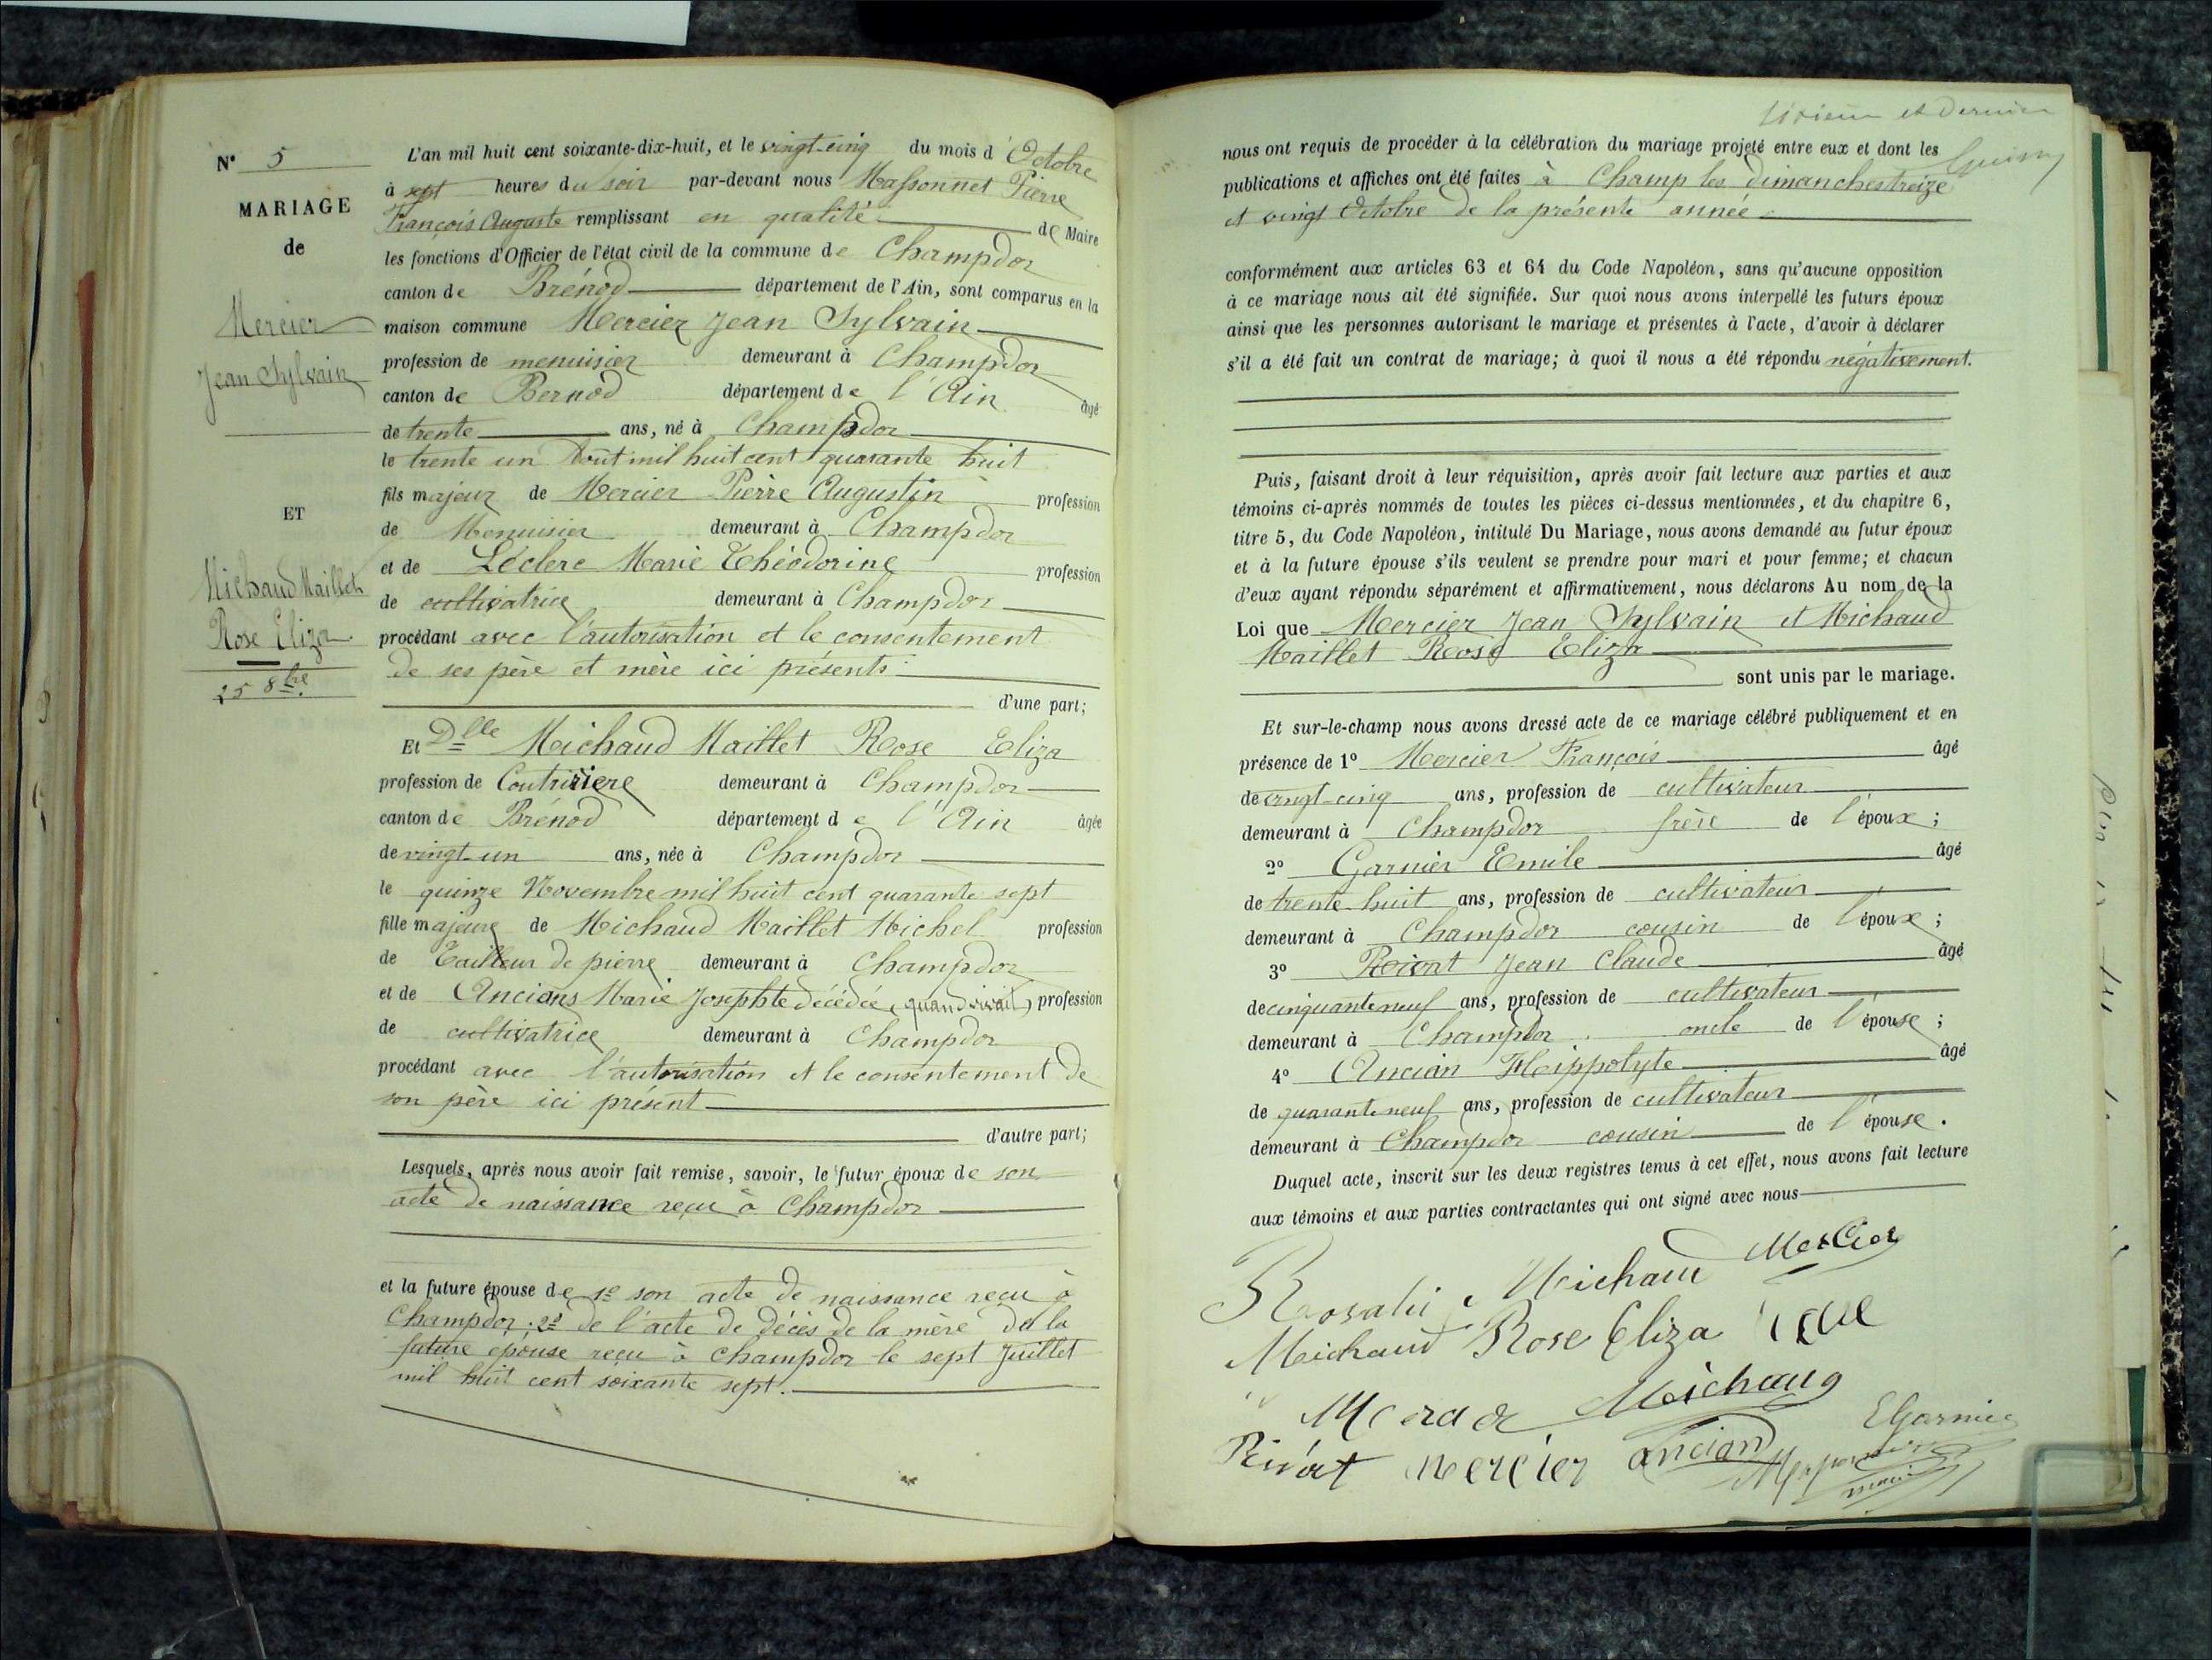 N° 5
MARIAGE
de
Mercier
Jean Sylvain
ET
Michaud Maillet
Rose Eliza
25 8bre
L'an mil huit cent soixante-dix-huit, et le vingt-cinq du mois d'Octobre
à sept heures du soir par-devant nous Massonnet Pierre
François Auguste remplissant en qualité de Maire
les fonctions d'Officier de l'état civil de la commune de Champdor
canton de Brénod département de l'Ain, sont comparus en la
maison commune Mercier Jean Sylvain
profession de menuisier demeurant à Champdor
canton de Bernod département de l'Ain âgé
de trente ans, né à Champdor
le trente un Aout mil huit cent quarante huit
fils majeur de Mercier Pierre Augustin profession
de Menuisier demeurant à Champdor
et de Léclerc Marie Théodorine profession
de cultivatrice demeurant à Champdor
procédant avec l'autorisation et le consentement
de ses père et mère ici présents
d'une part;
Et Dlle Michaud Maillet Rose Eliza
profession de Couturiere demeurant à Champdor
canton de Brénod département de l'Ain âgée
de vingt-un ans, née à Champdor
le quinze Novembre mil huit cent quarante sept
fille majeure de Michaud Maillet Michel profession
de Tailleur de pierre demeurant à Champdor
et de Ancians Marie Josephte décédée (quand vivait) profession
de cultivatrice demeurant à Champdor
procédant avec l'autorisation et le consentement de
son père ici présent
d'autre part;
Lesquels, après nous avoir fait remise, savoir, le futur époux de son
acte de naissance reçu à Champdor
et la future épouse de 1° son acte de naissance reçu à
Champdor; 2° de l'acte de décès de la mère de la
future épouse reçu à Champdor le sept Juillet
mil huit cent soixante sept.
et Dernier
nous ont requis de procéder à la célébration du mariage projeté entre eux et dont les
publications et affiches ont été faites à Champ les dimanches treize
et vingt Octobre de la présente année
conformément aux articles 63 et 64 du Code Napoléon, sans qu'aucune opposition
à ce mariage nous ait été signifiée. Sur quoi nous avons interpellé les futurs époux
ainsi que les personnes autorisant le mariage et présentes à l'acte, d'avoir à déclarer
s'il a été fait un contrat de mariage; à quoi il nous a été répondu négativement.
Puis, faisant droit à leur réquisition, après avoir fait lecture aux parties et aux
témoins ci-après nommés de toutes les pièces ci-dessus mentionnées, et du chapitre 6,
titre 5, du Code Napoléon, intitulé Du Mariage, nous avons demandé au futur époux
et à la future épouse s'ils veulent se prendre pour mari et pour femme; et chacun
d'eux ayant répondu séparément et affirmativement, nous déclarons Au nom de la
Loi que Mercier Jean Sylvain et Michaud
Maillet Rose Eliza
sont unis par le mariage.
Et sur-le-champ nous avons dressé acte de ce mariage célébré publiquement et en
présence de 1° Mercier François âgé
de vingt-cinq ans, profession de cultivateur
demeurant à Champdor frère de l'époux;
2° Garnier Emile âgé
de trente huit ans, profession de cultivateur
demeurant à Champdor cousin de l'époux;
3° Roivat Jean Claude âgé
de cinquante neuf ans, profession de cultivateur
demeurant à Champdor oncle de l'épouse;
4° Ancian Hippolyte âgé
de quarante neuf ans, profession de cultivateur
demeurant à Champdor cousin de l'épouse.
Duquel acte, inscrit sur les deux registres tenus à cet effet, nous avons fait lecture
aux témoins et aux parties contractantes qui ont signé avec nous
Rosalie Michaud Mercier
Michaud Rose Eliza
Michaud
EGarnier
Rivat mercier ancian